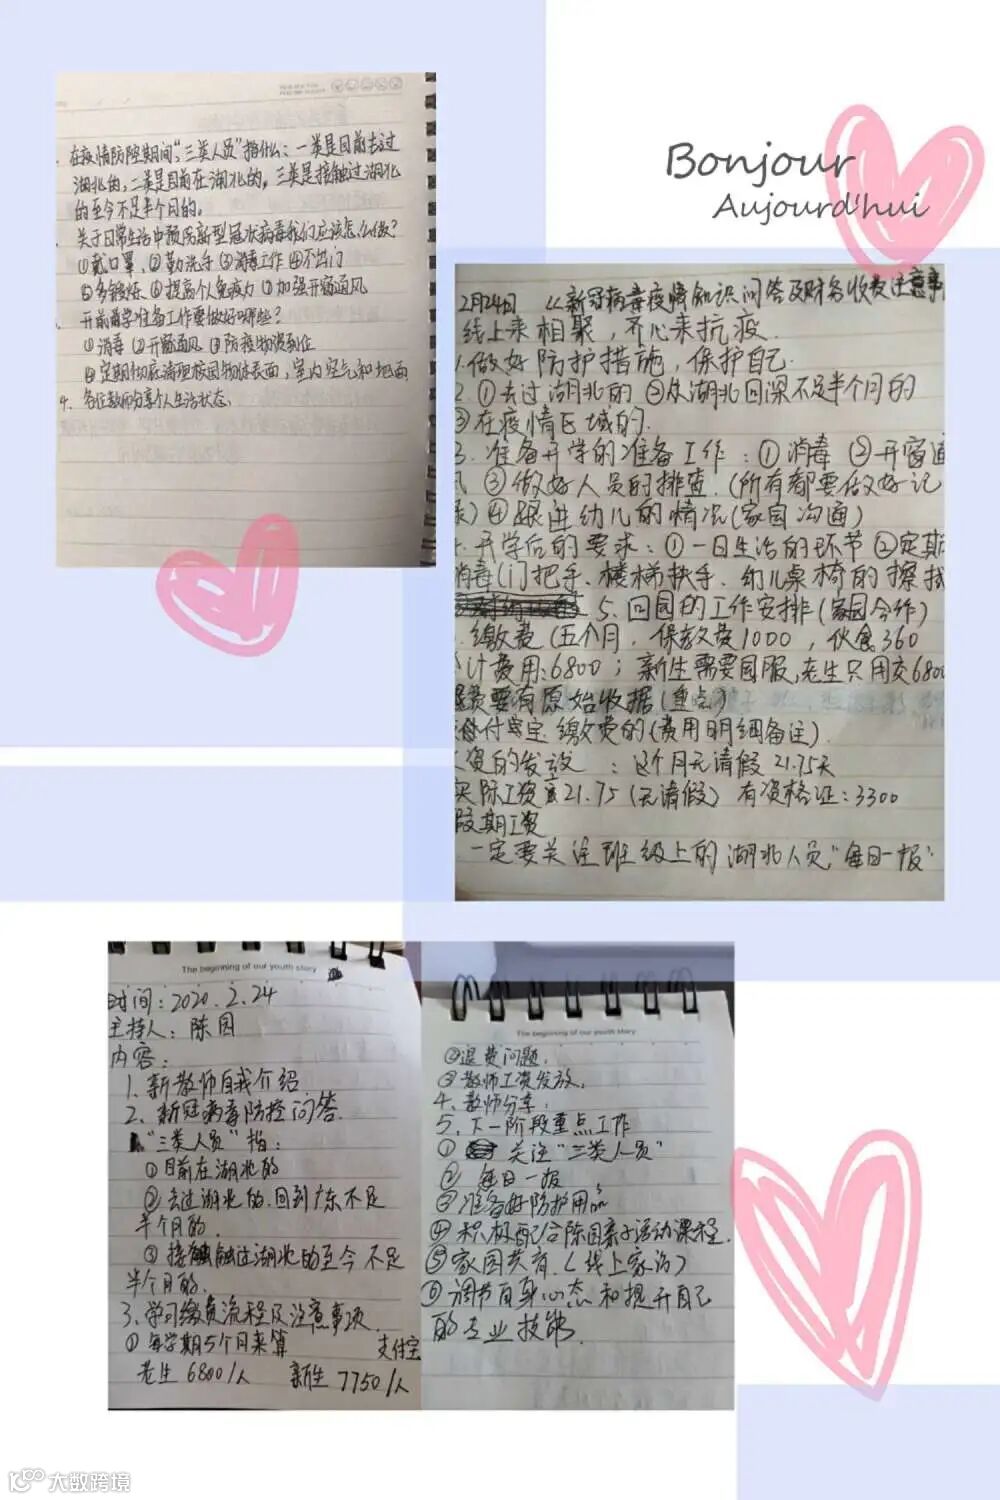 Bonjour
Aujourd'hui
在疫情防控期间,"三类人员"指什么:一类是目前去过
湖北的,二类是目前在湖北的,三类是接触过湖北
的至今不足半个月的。
关于日常生活中预防新型冠状病毒我们应该怎么做?
①戴口罩、②勤洗手 ③消毒工作 ④不出门
⑤多锻炼 ⑥提高个人免疫力 ⑦加强开窗通风
开前前学准备工作要做好哪些?
①消毒 ②开窗通风 ③防疫物资到位
④定期彻底清理校园物体表面,室内空气和地面
4、各位教师分享个人生活状态、
2月24日 《新冠病毒疫情知识问答及财务收费注意事
线上来相聚,齐心来抗疫.
1.做好防护措施,保护自己.
2.①去过湖北的 ②从湖北回深不足半个月的
③在疫情区域的.
3.准备开学的准备工作:①消毒 ②开窗通
风 ③做好人员的排查.(所有都要做好记
录)④跟进幼儿的情况(家园沟通)
开学后的要求:①一日生活的环节 ②定期
消毒(门把手、楼梯扶手、幼儿桌椅的擦拭
5.回园的工作安排(家园合作)
缴费(五个月,保教费1000,伙食360
计费用:6800;新生需要园服,老生只用交6800
退费要有原始收据(重点)
付宝缴费的(费用明细备注).
资的发放:这个月无请假 21.75天
实际工资 21.75(无请假) 有资格证:3300
假期工资
一定要关注班级上的湖北人员"每日一报"
The beginning of our youth story
时间:2020.2.24
主持人:陈园
内容:
1.新教师自我介绍
2、新冠病毒防控问答.
"三类人员"指:
①目前在湖北的
②去过湖北的.回到广东不足
半个月的.
③接触触过湖北的至今不足
半个月的.
3、学习缴费流程及注意事项.
①每学期5个月来算 支付宝
老生 6800/人 新生 7750/人
The beginning of our youth story
②退费问题.
③教师工资发放.
4、教师分享.
5、下一阶段重点工作
① 关注"三类人员"
② 每日一报
③准备好防护用品
④积极配合陈园亲子活动课程.
⑤家园共育.(线上家访)
⑥调节自身心态和提升自己
的专业技能.
大数跨境